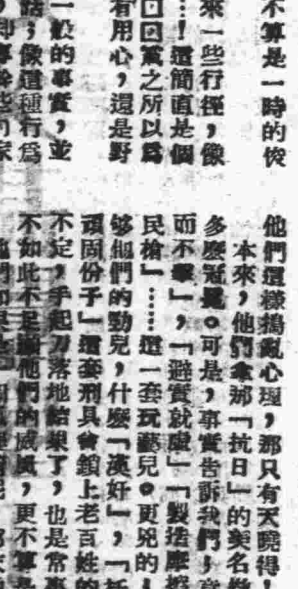 不算是一時的
來一些行徑，像
…！這簡直是個
囗囗黨之所以爲
有用心，還是野
一般的事實，並
話；像這種行爲
他們這樣搗亂心理，那只有天曉得！
本來，他們拿那「抗日」的美名
多麼冠冕。可是，事實告訴我們，竟
而不擊」，「避實就虛」「製造摩擦
民槍」……這一套玩藝兒。更兇的
够他們的勁兒，什麼「漢奸」，「托
頑固份子」這套刑具會鎖上老百姓的
不定，手起刀落地結果了，也是常事
不如此不足顯他們的威風，更不算是